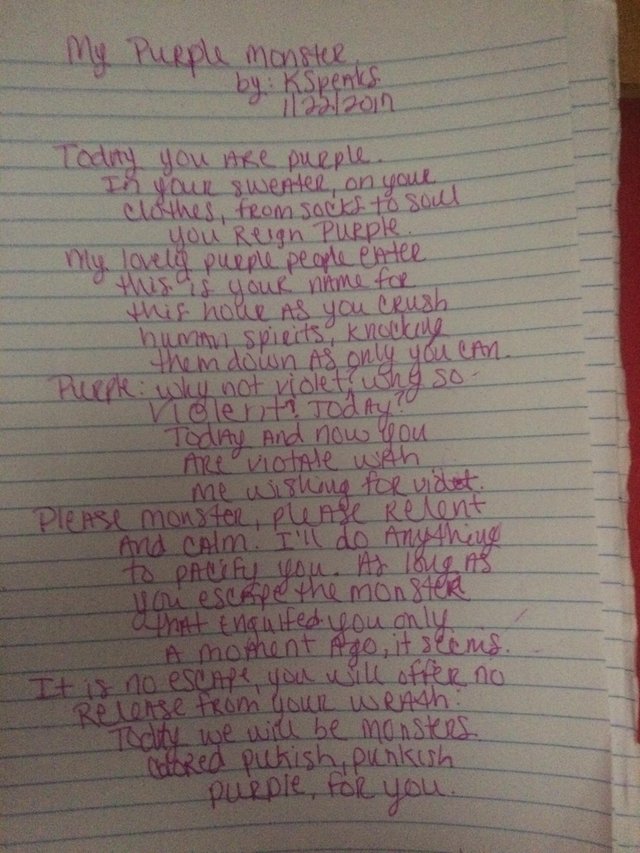 My Purple monster
by: KSpeaks
1/22/2017
Today you are purple.
In your sweater, on your
clothes, from socks to soul
you Reign Purple.
My lovely purple people eater
this is your name for
this hour as you crush
human spirits, knocking
them down as only you can.
Purple: why not violet? why so
violent? Today?
Today and now you
are violate with
me wishing for violet.
Please monster, please relent
and calm. I'll do anything
to pacify you. As long as
you escape the monster
that engulfed you only
a moment ago, it seems.
It is no escape, you will offer no
Release from your wrath.
Today we will be monsters
colored pukish, punkish
purple, for you.